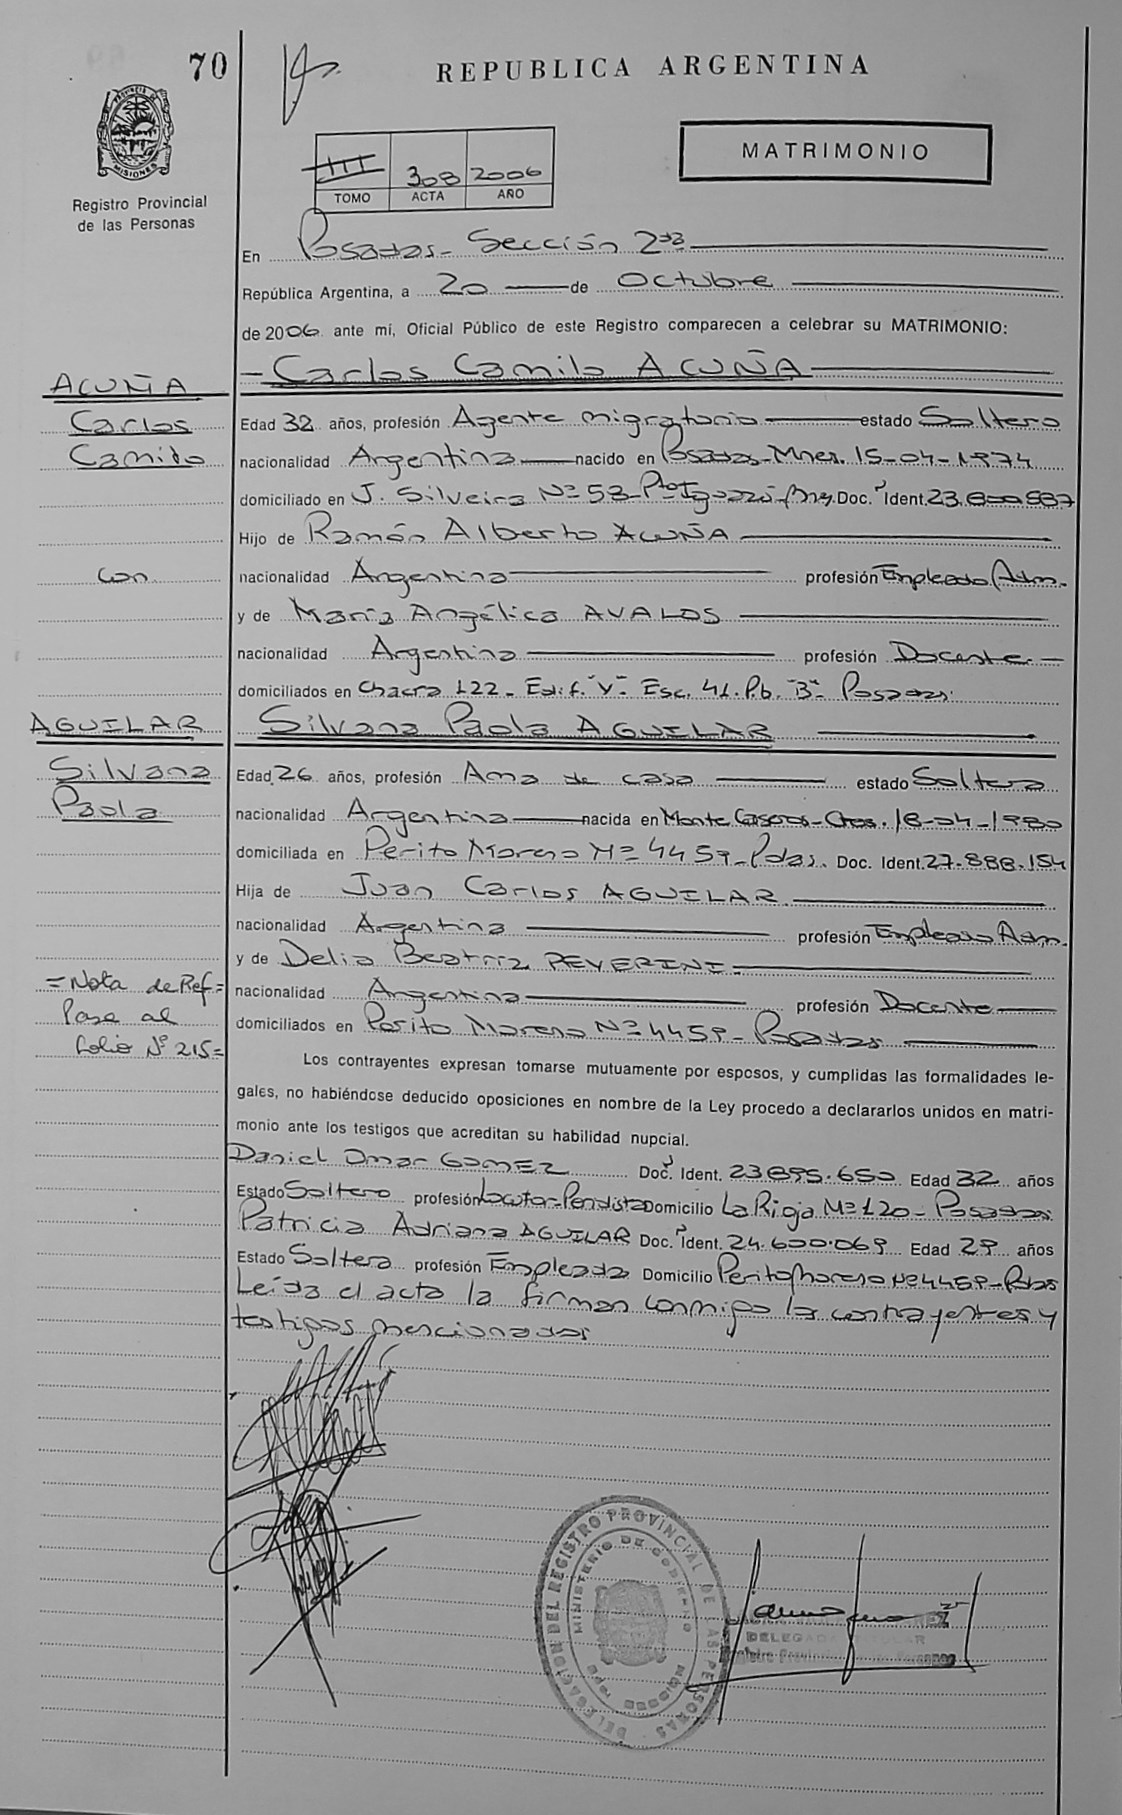 70
REPUBLICA ARGENTINA
PROVINCIA DE
MISIONES
MATRIMONIO
III 308 2006
TOMO ACTA AÑO
Registro Provincial
de las Personas
En Posadas- Sección 2da
República Argentina, a 20 de Octubre
de 2006 ante mí, Oficial Público de este Registro comparecen a celebrar su MATRIMONIO:
- Carlos Camilo ACUÑA
ACUÑA
Carlos
Camilo
Edad 32 años, profesión Agente migratorio estado Soltero
nacionalidad Argentina nacido en Posadas-Mnes. 15-04-1974
domiciliado en J. Silveira Nº 53-Pto Iguazú-Mnes. Doc. Ident. 23.800.887
Hijo de Ramón Alberto ACUÑA
con
nacionalidad Argentina profesión Empleado Adm.
y de María Angélica AVALOS
nacionalidad Argentina profesión Docente.-
domiciliados en Chacra 122- Edif. "V"- Esc. 41. Pb. "B"- Posadas.
AGUILAR
Silvana
Paola
Silvana Paola AGUILAR
Edad 26 años, profesión Ama de casa estado Soltera
nacionalidad Argentina nacida en Monte Caseros-Ctes. 18-04-1980
domiciliada en Perito Moreno Nº 4459-Pdas. Doc. Ident. 27.888.154
Hija de Juan Carlos AGUILAR
nacionalidad Argentina profesión Empleado Adm.
y de Delia Beatriz PEVERINI
nacionalidad Argentina profesión Docente
domiciliados en Perito Moreno Nº 4459- Posadas
=Nota de Ref=
Pase al
folio Nº 215=
Los contrayentes expresan tomarse mutuamente por esposos, y cumplidas las formalidades le-
gales, no habiéndose deducido oposiciones en nombre de la Ley procedo a declararlos unidos en matri-
monio ante los testigos que acreditan su habilidad nupcial.
Daniel Omar GOMEZ Doc. Ident. 23.895.650 Edad 32 años
Estado Soltero profesión Locutor-Periodista Domicilio La Rioja Nº 120- Posadas
Patricia Adriana AGUILAR Doc. Ident. 24.600.069 Edad 29 años
Estado Soltera profesión Empleada Domicilio Perito Moreno Nº 4459-Pdas
Leída el acta la firman conmigo los contrayentes y
testigos mencionados
DELEGACION DEL REGISTRO PROVINCIAL DE LAS PERSONAS
MINISTERIO DE GOBIERNO
DELEGADA TITULAR
Registro Provincial de las Personas